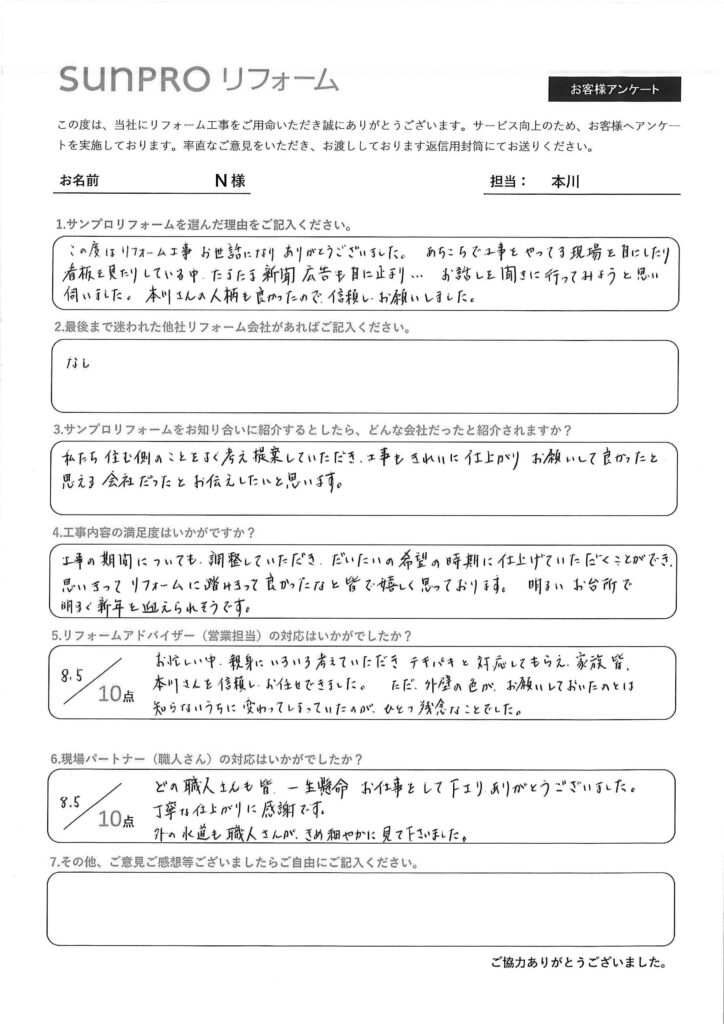 sunPRO リフォーム
お客様アンケート
この度は、当社にリフォーム工事をご用命いただき誠にありがとうございます。サービス向上のため、お客様へアンケー
トを実施しております。率直なご意見をいただき、お渡ししております返信用封筒にてお送りください。
お名前 N 様 担当： 本川
1.サンプロリフォームを選んだ理由をご記入ください。
この度はリフォーム工事 お世話になり ありがとうございました。 あちこちで工事をやってる現場を目にしたり
看板を見たりしている中、たまたま新聞広告も目に止まり… お話しを聞きに行ってみようと思い
伺いました。 本川さんの人柄も良かったので、信頼し、お願いしました。
2.最後まで迷われた他社リフォーム会社があればご記入ください。
なし
3.サンプロリフォームをお知り合いに紹介するとしたら、どんな会社だったと紹介されますか？
私たち 住む側のことをよく考え提案していただき、工事も きれいに 仕上がり お願いして良かったと
思える会社だったとお伝えしたいと思います。
4.工事内容の満足度はいかがですか？
工事の期間についても、調整していただき、だいたいの希望の時期に仕上げていただくことができ、
思いきって リフォームに踏みきって良かったなと皆で嬉しく思っております。 明るい お台所で
明るく新年を迎えられそうです。
5.リフォームアドバイザー（営業担当）の対応はいかがでしたか？
8.5／10点
お忙しい中、親身にいろいろ考えていただき テキパキと対応してもらえ、家族皆、
本川さんを信頼し、お任せできました。 ただ、外壁の色が、お願いしておいたのとは
知らないうちに変わってしまっていたのが、ひとつ残念なことでした。
6.現場パートナー（職人さん）の対応はいかがでしたか？
8.5／10点
どの職人さんも皆、一生懸命 お仕事をして下さり、ありがとうございました。
丁寧な仕上がりに感謝です。
外の水道も職人さんが、きめ細やかに見て下さいました。
7.その他、ご意見ご感想等ございましたらご自由にご記入ください。
ご協力ありがとうございました。